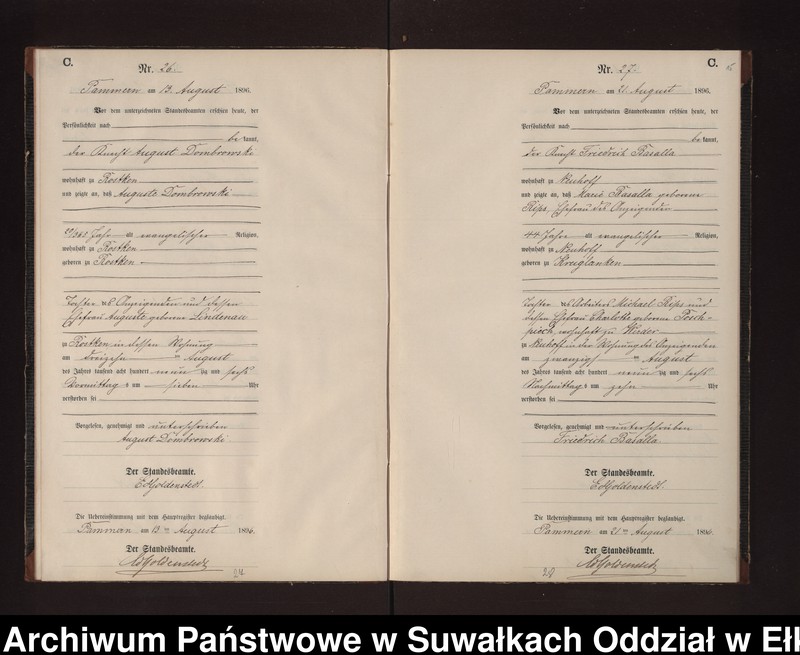 C.
Nr. 26.
Pammern am 13. August 1896.
Vor dem unterzeichneten Standesbeamten erschien heute, der
Persönlichkeit nach
be kannt,
der August Dombrowski
wohnhaft zu Rostken
und zeigte an, daß Auguste Dombrowski
/365 Jahr alt evangelischer Religion,
wohnhaft zu Rostken
geboren zu Rostken
Tochter des Anzeigenden und dessen
Ehefrau Auguste geborne Lindenau
zu Rostken in dessen Wohnung
am dreizehn ten August
des Jahres tausend acht hundert neun zig und sechs
Vormittag s um sieben Uhr
verstorben sei
Vorgelesen, genehmigt und unterschrieben
August Dombrowski
Der Standesbeamte.
Goldenstedt.
Die Uebereinstimmung mit dem Hauptregister beglaubigt.
Pammern am 13 ten August 1896.
Der Standesbeamte.
Goldenstedt
24
C.
Nr. 27.
Pammern am 21. August 1896.
Vor dem unterzeichneten Standesbeamten erschien heute, der
Persönlichkeit nach
be kannt,
der Friedrich Basalla
wohnhaft zu Neuhoff
und zeigte an, daß Marie Basalla geborene
Rips, Ehefrau des Anzeigenden
44 Jahre alt evangelischer Religion,
wohnhaft zu Neuhoff
geboren zu Kruglanken
Tochter des Arbeiters Michael Rips und
dessen Ehefrau Charlotte geborene
wohnhaft zu Werder
zu Neuhoff in der Wohnung des Anzeigenden
am zwanzig ten August
des Jahres tausend acht hundert neun zig und sechs
Nachmittag s um zehn Uhr
verstorben sei
Vorgelesen, genehmigt und unterschrieben
Friedrich Basalla.
Der Standesbeamte.
Goldenstedt.
Die Uebereinstimmung mit dem Hauptregister beglaubigt.
Pammern am 21 ten August 1896.
Der Standesbeamte.
Goldenstedt
Archiwum Państwowe w Suwałkach Oddział w Ełk